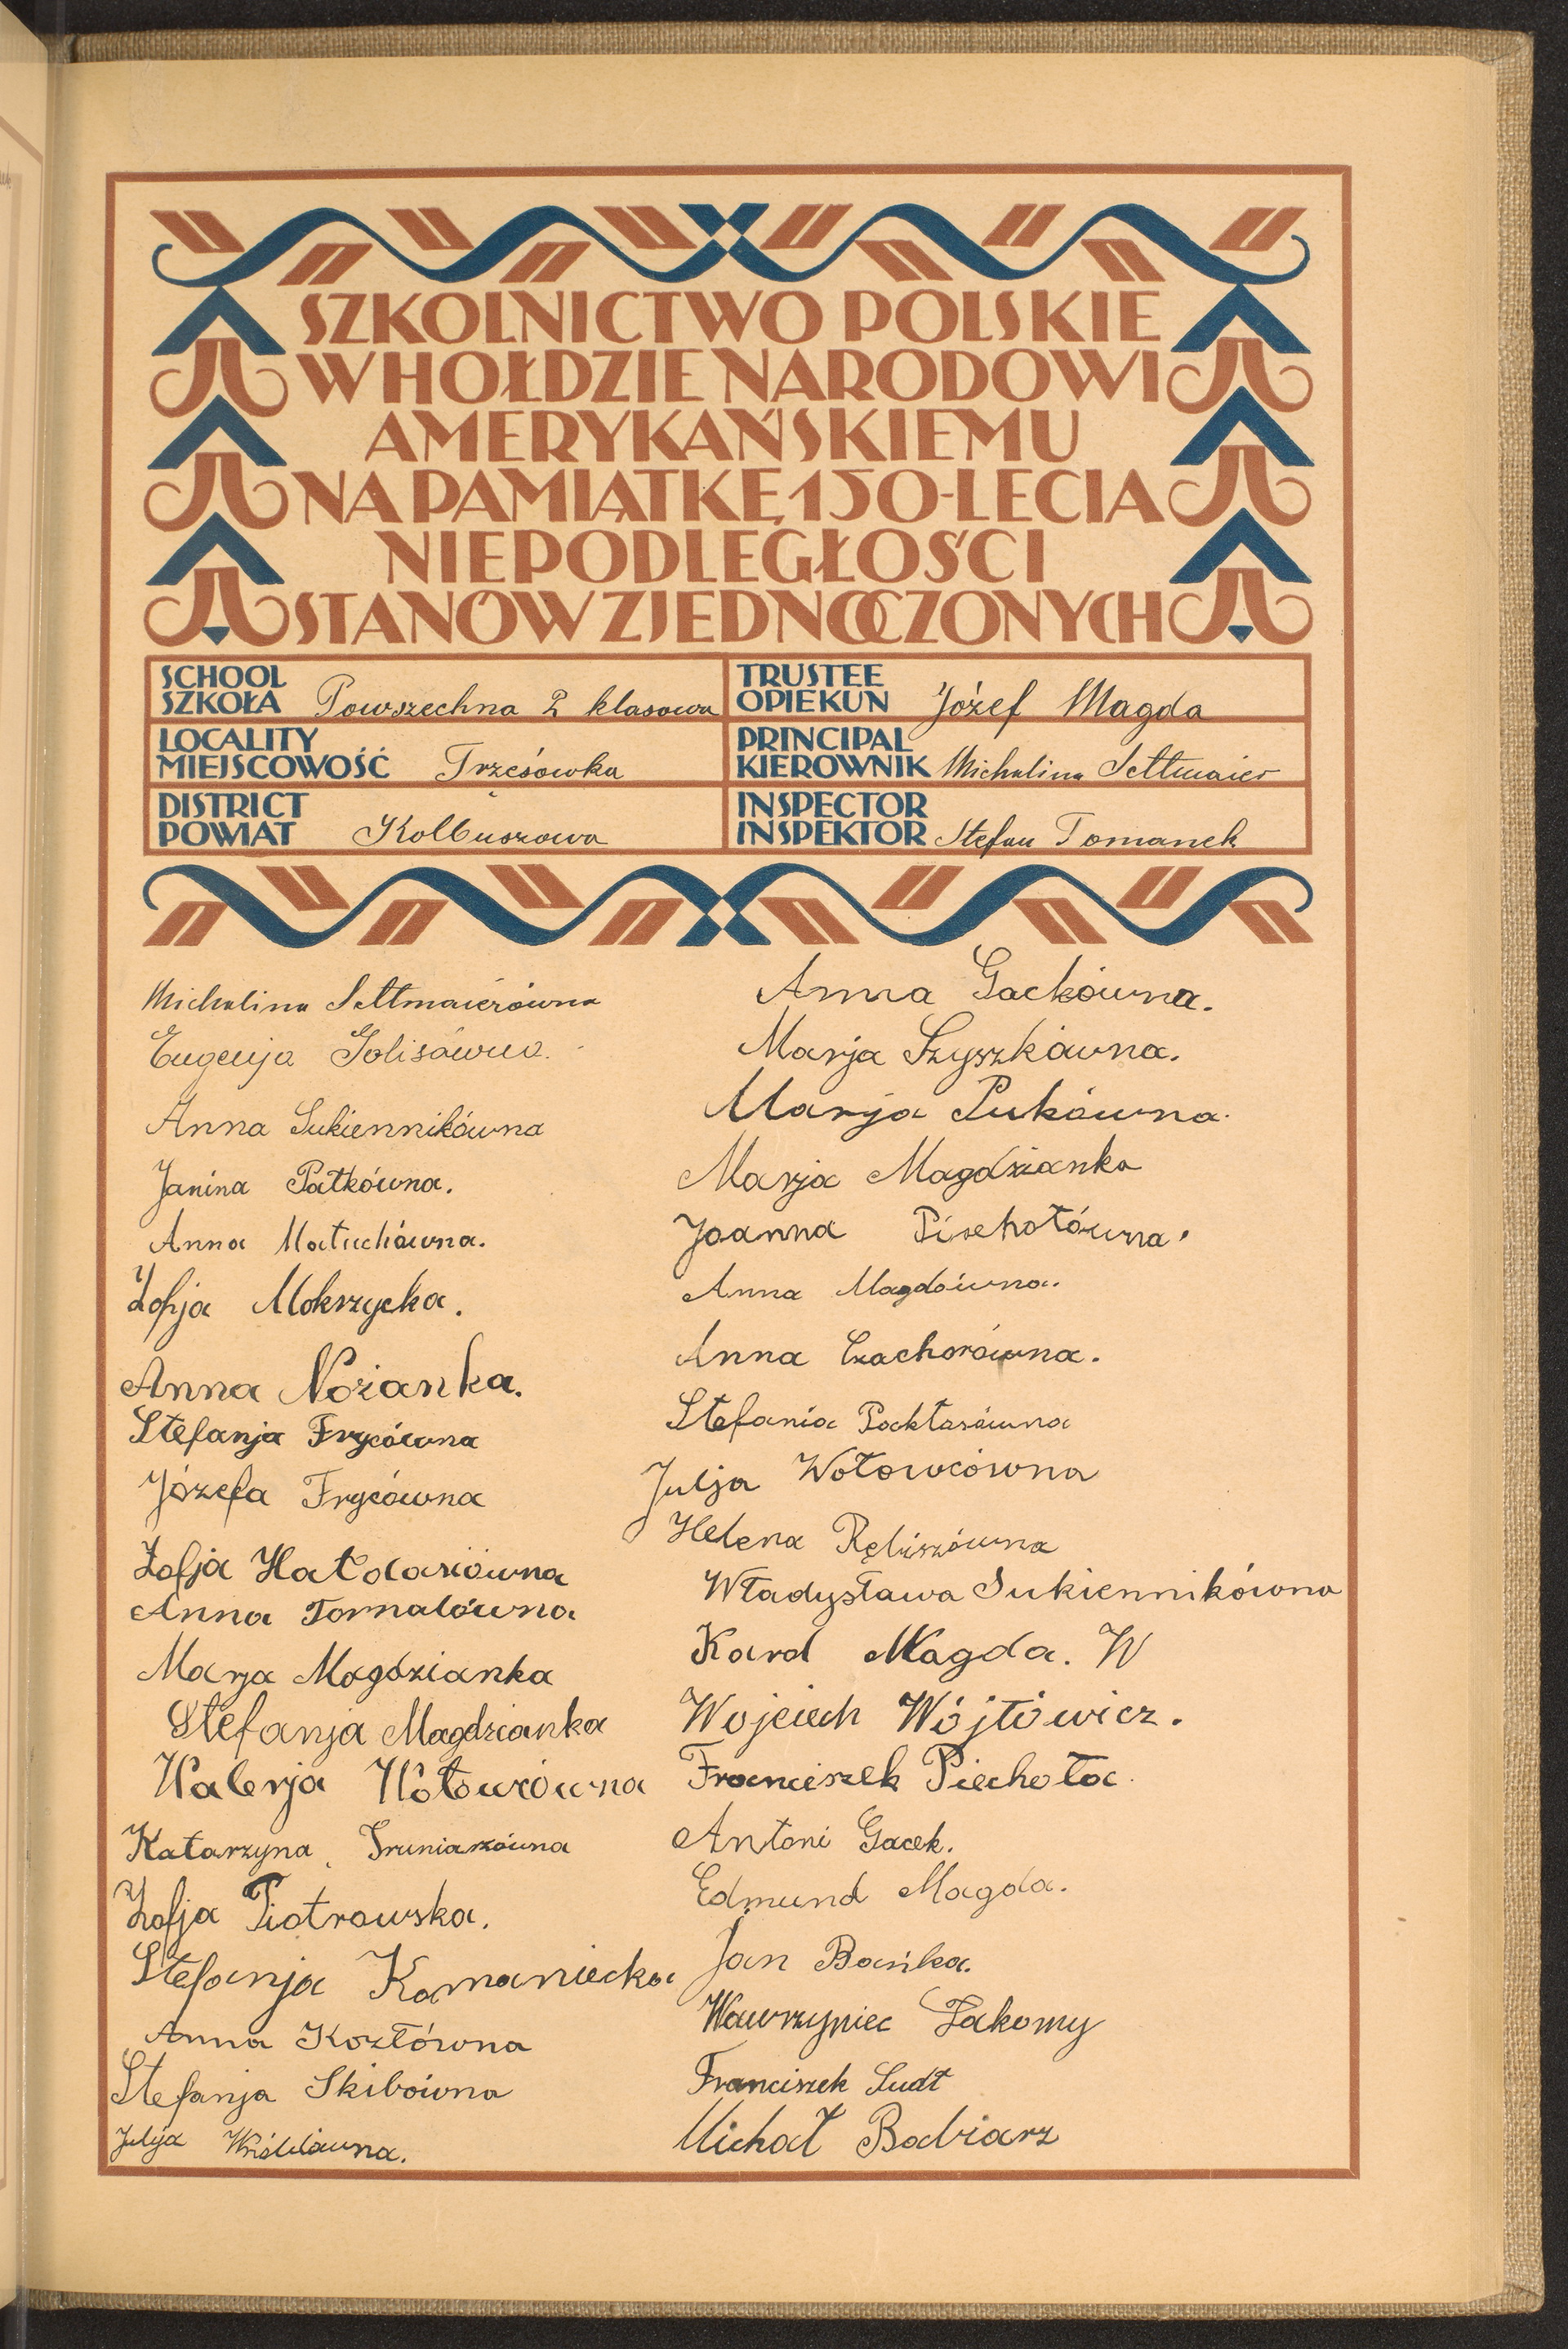 SZKOLNICTWO POLSKIE
W HOŁDZIE NARODOWI
AMERYKAŃSKIEMU
NA PAMIĄTKĘ 150-LECIA
NIEPODLEGŁOŚCI
STANÓW ZJEDNOCZONYCH
SCHOOL
SZKOŁA Powszechna 2 klasowa
TRUSTEE
OPIEKUN Józef Magda
LOCALITY
MIEJSCOWOŚĆ Trzęsówka
PRINCIPAL
KIEROWNIK Michalina Settmaier
DISTRICT
POWIAT Kolbuszowa
INSPECTOR
INSPEKTOR Stefan Tomanek
Michalina Settmaierówna
Eugenja Golisówna.
Anna Sukiennikówna
Janina Patkówna.
Anna Matuchówna.
Zofja Mokrzycka.
Anna Nożanka.
Stefanja Frycówna
Józefa Frycówna
Zofja
Anna Tornalówna
Marja Magdzianka
Stefanja Magdzianka
Walerja Wołowcówna
Katarzyna
Zofja Piotrowska.
Stefanja Komaniecka
Anna Kozłówna
Stefanja Skibówna
Julja
Anna Gackówna.
Marja Szyszkówna.
Marja Pukówna.
Marja Magdzianka
Joanna
Anna Magdówna.
Anna Czachorówna.
Stefania
Julja Wołowcówna
Helena Rębiszówna
Władysława Sukiennikówna
Karol Magda. W
Wojciech Wójtowicz.
Franciszek Piechota
Antoni Gacek.
Edmund Magda.
Jan Bańka.
Wawrzyniec Łakomy
Franciszek Sudt
Michał Babiarz